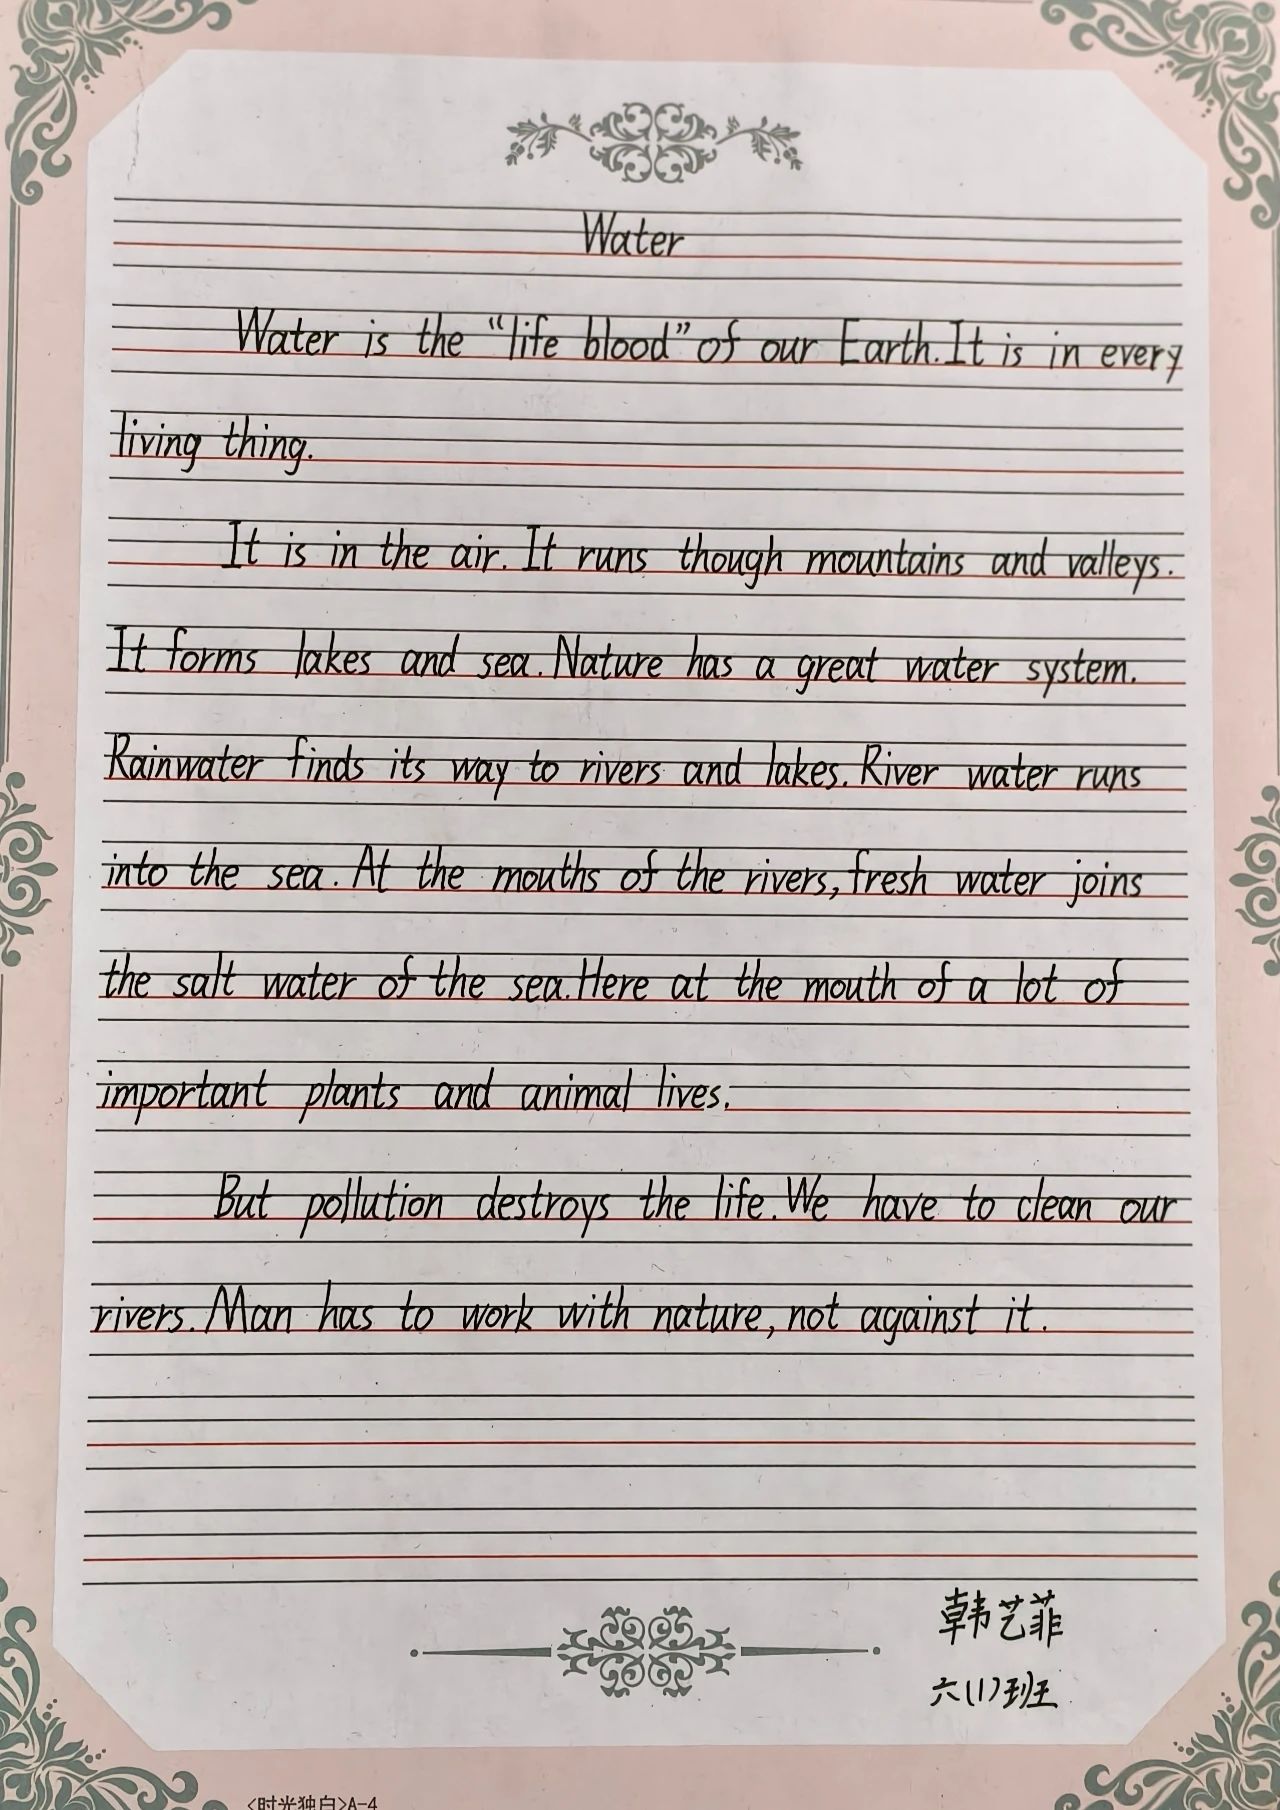 Water
Water is the “life blood” of our Earth. It is in every
living thing.
It is in the air. It runs though mountains and valleys.
It forms lakes and sea. Nature has a great water system.
Rainwater finds its way to rivers and lakes. River water runs
into the sea. At the mouths of the rivers, fresh water joins
the salt water of the sea. Here at the mouth of a lot of
important plants and animal lives.
But pollution destroys the life. We have to clean our
rivers. Man has to work with nature, not against it.
韩艺菲
六(1)班
<时光独白>A-4